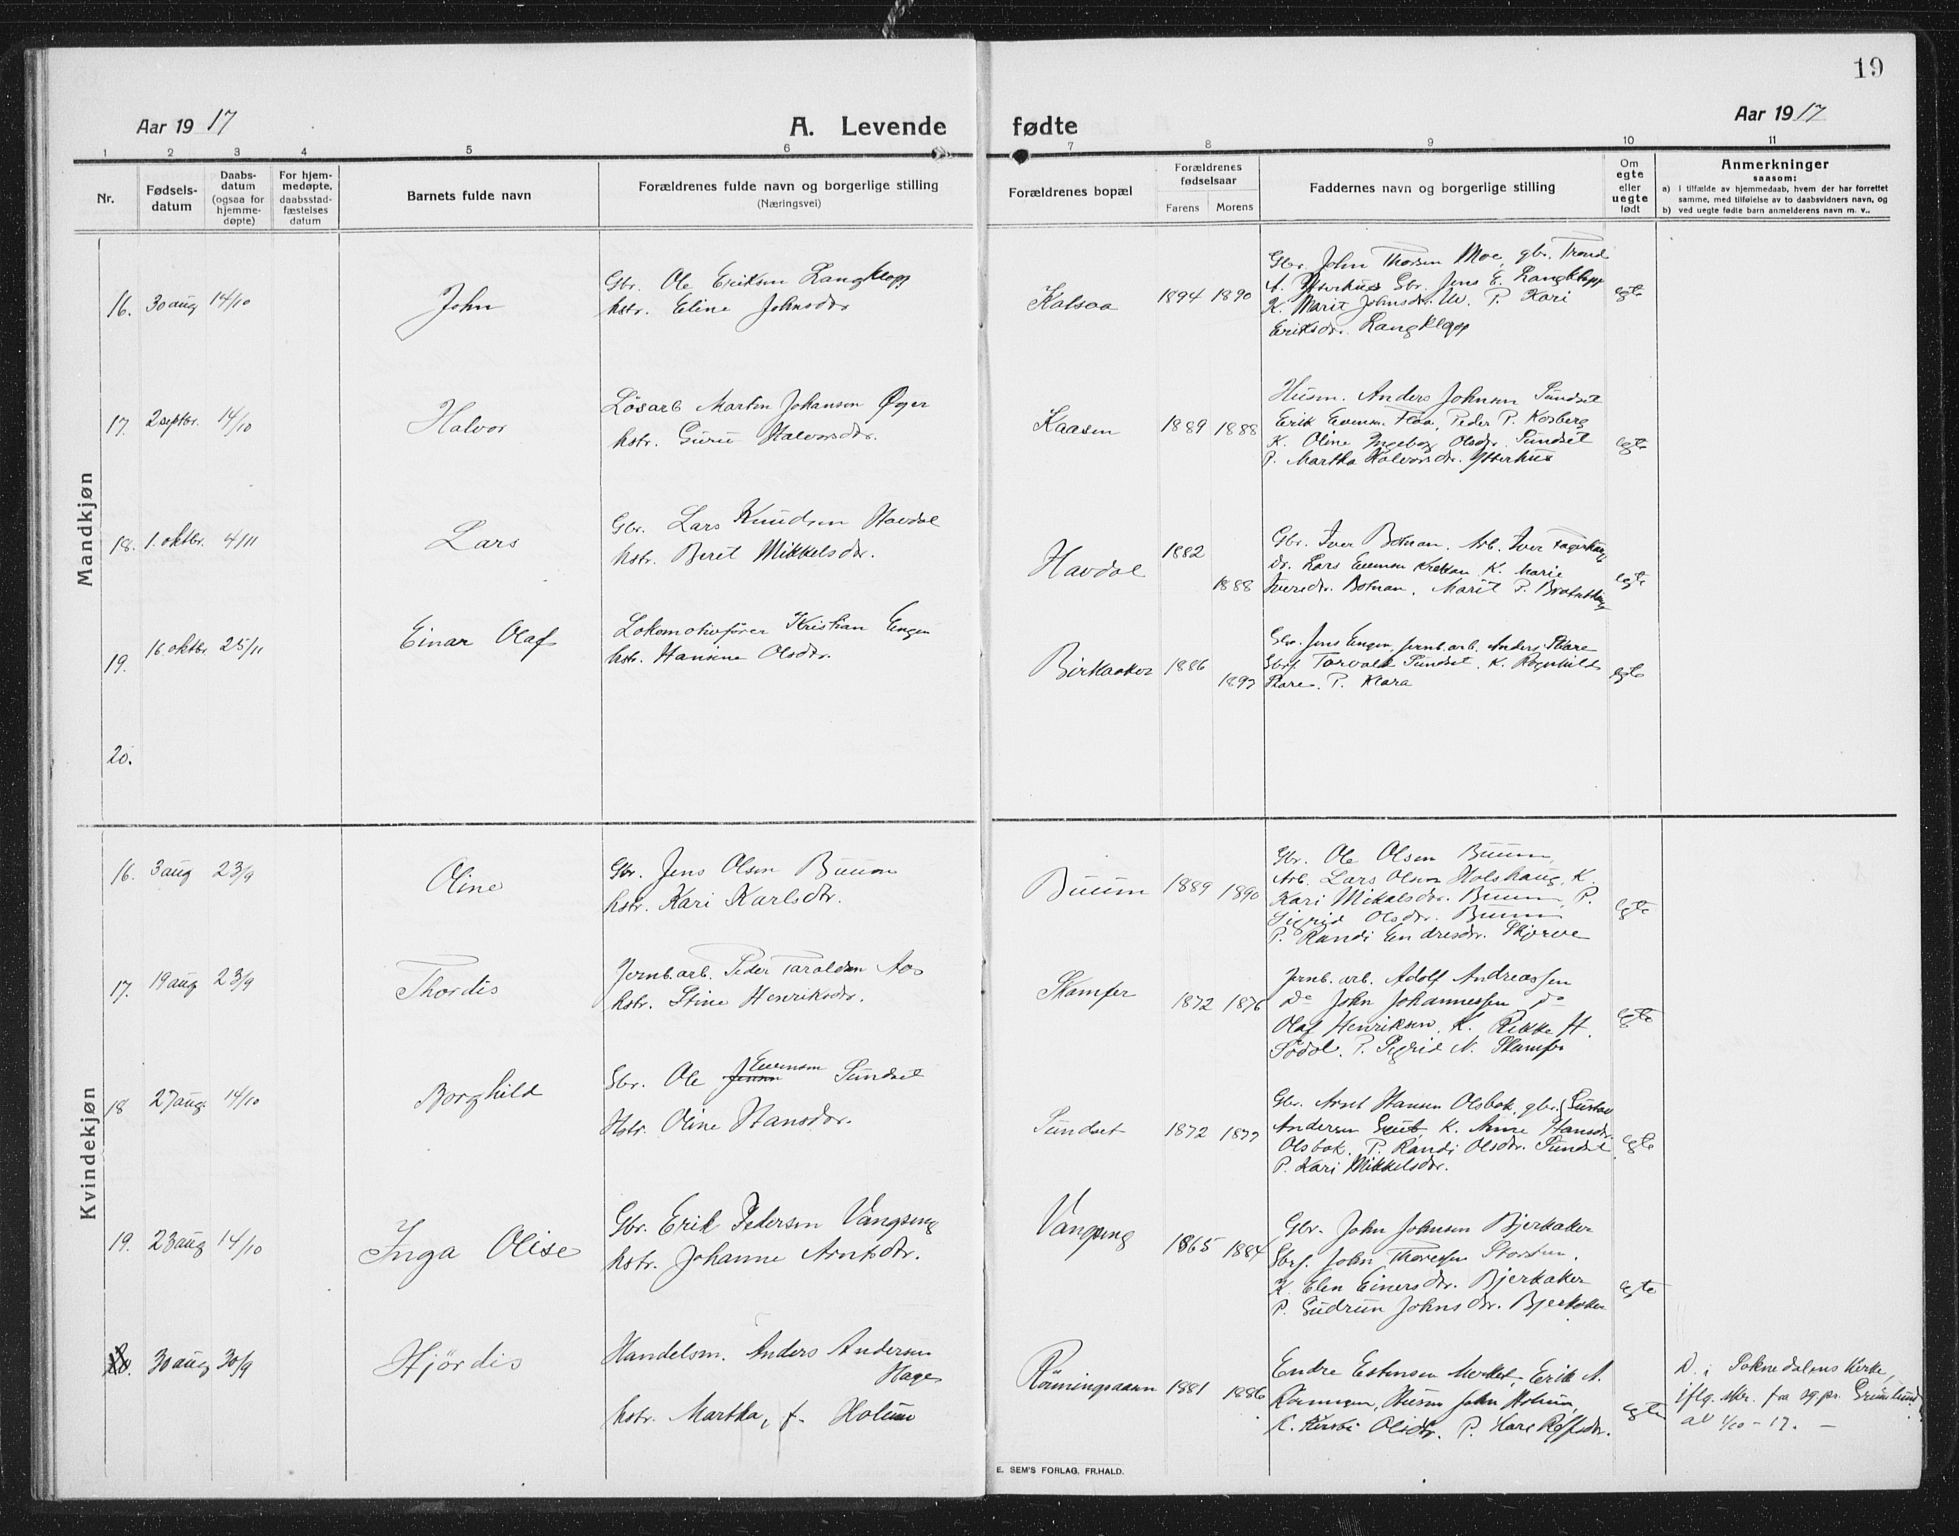 19
Aar 1917
A. Levende fødte
Aar 1917
1 2 3 4 5 6 7 8 9 10 11
Nr.
Fødsels-
datum
Daabs-
datum
(ogsaa for
hjemme-
døpte)
For hjem-
medøpte,
daabsstad-
fæstelses
datum
Barnets fulde navn
Forældrenes fulde navn og borgerlige stilling
(Næringsvei)
Forældrenes bopæl
Forældrenes
fødselsaar
Farens Morens
Faddernes navn og borgerlige stilling
Om
egte
eller
uegte
født
Anmerkninger
saasom:
a) I tilfælde av hjemmedaab, hvem der har forrettet
samme, med tilføielse av to daabsvidners navn, og
b) ved uegte fødte barn anmelderens navn m. v..
Mandkjøn
16. 30 aug 14/10
John
Gbr. Ole Eriksen Langklopp
hstr. Eline Johnsdr
Kalsaa
1894 1890
Gbr. John Thorsen Moe, gbr. Trond
A. Ytterhus Gbr. Jens E. Langklopp
K. Marit Johnsdr. P. Kari
Eriksdr. Langklopp
egte
17. 2 septbr. 14/10
Halvor
Løsarb Morten Johansen Øyer
hstr. Guru Halvorsdr.
Kaasen
1889 1888
Husm. Anders Johnsen Sundset
Erik Evensen Floa, Peder P. Kosberg
K. Oline Ingeborg Olsdr. Sundset
P. Martha Halvorsdr. Ytterhus
egte
18. 1. oktbr. 4/11
Lars
Gbr. Lars Knudsen Havdal
hstr. Beret Mikkelsdr.
Havdal
1882
1888
Gbr. Iver Botnan. Arb. Iver Fagerhaug
Dr. Lars Evensen K. Marie
Iversdr. Botnan. Marit P.
egte
19. 16. oktbr. 25/11
Einar Olaf
Lokomotivfører Kristian Engen
hstr. Hansine Olsdtr.
Birkaaker
1886
1897
Gbr. Jens Engen, jernb.arb. Anders Skare
Gbrs. Torvald Sundset. K. Ragnhild
Skare. P. Klara
egte
20.
Kvindekjøn
16. 3 aug 23/9
Oline
Gbr. Jens Olsen Buum
hstr. Kari Karlsdtr.
Buum
1889 1890
Gbr. Ole Olsen Buum,
Arb. Lars Olsen Holshaug, K.
Kari Mikalsdr. Buum, P.
Sigrid Olsdr. Buum
P. Randi Endresdr. Skjerve
egte
17. 19 aug 23/9
Thordis
Jernb.arb. Peder Taraldsen Aos
hstr. Stine Henriksdr.
Skamfer
1872 1876
Jernb. arb. Adolf Andreassen
Do John Johannessen do
Olaf Henriksen. K. Rikke H.
Södal. P. Sigrid N. Skamfer
egte
18 27 aug. 14/10
Borghild
Gbr. Ole Jensen Evensen Sundset
Hstr. Oline Hansdr.
Sundset
1872 1877
Gbr. Arnt Hansen Olsbak, gbr. Gustav
Andersen K. Anne Hansdr.
Olsbak. P. Randi Olsdr. Sundset
P. Kari Mikkelsdr.
egte
19. 23 aug 14/10
Inga Olise
Gbr. Erik Pedersen Vangseng
hstr. Johanne Arntsdtr.
Vangseng
1865 1884
Gbr. John Johnsen Bjerkaker
Gbrs. John Thoresen Storstun.
K. Elen Einersdr. Bjerkaker
P. Gudrun Johnsdr. Bjerkaker
egte
20. 30 aug 30/9
Hjördis
Handelsm. Anders Andersen
Hage
hstr. Martha, f. Holum
Rönningsaarn
1881 1886
Endre Estensen Merket, Erik A.
Rönningen, Husm John Holum,
K. Olsdr. P. Kari
egte
D. i Soknedalens kirke,
iflg. skr. fra sg.pr. Grönlund
av 1/10-17. —
E. SEM'S FORLAG, FR.HALD.